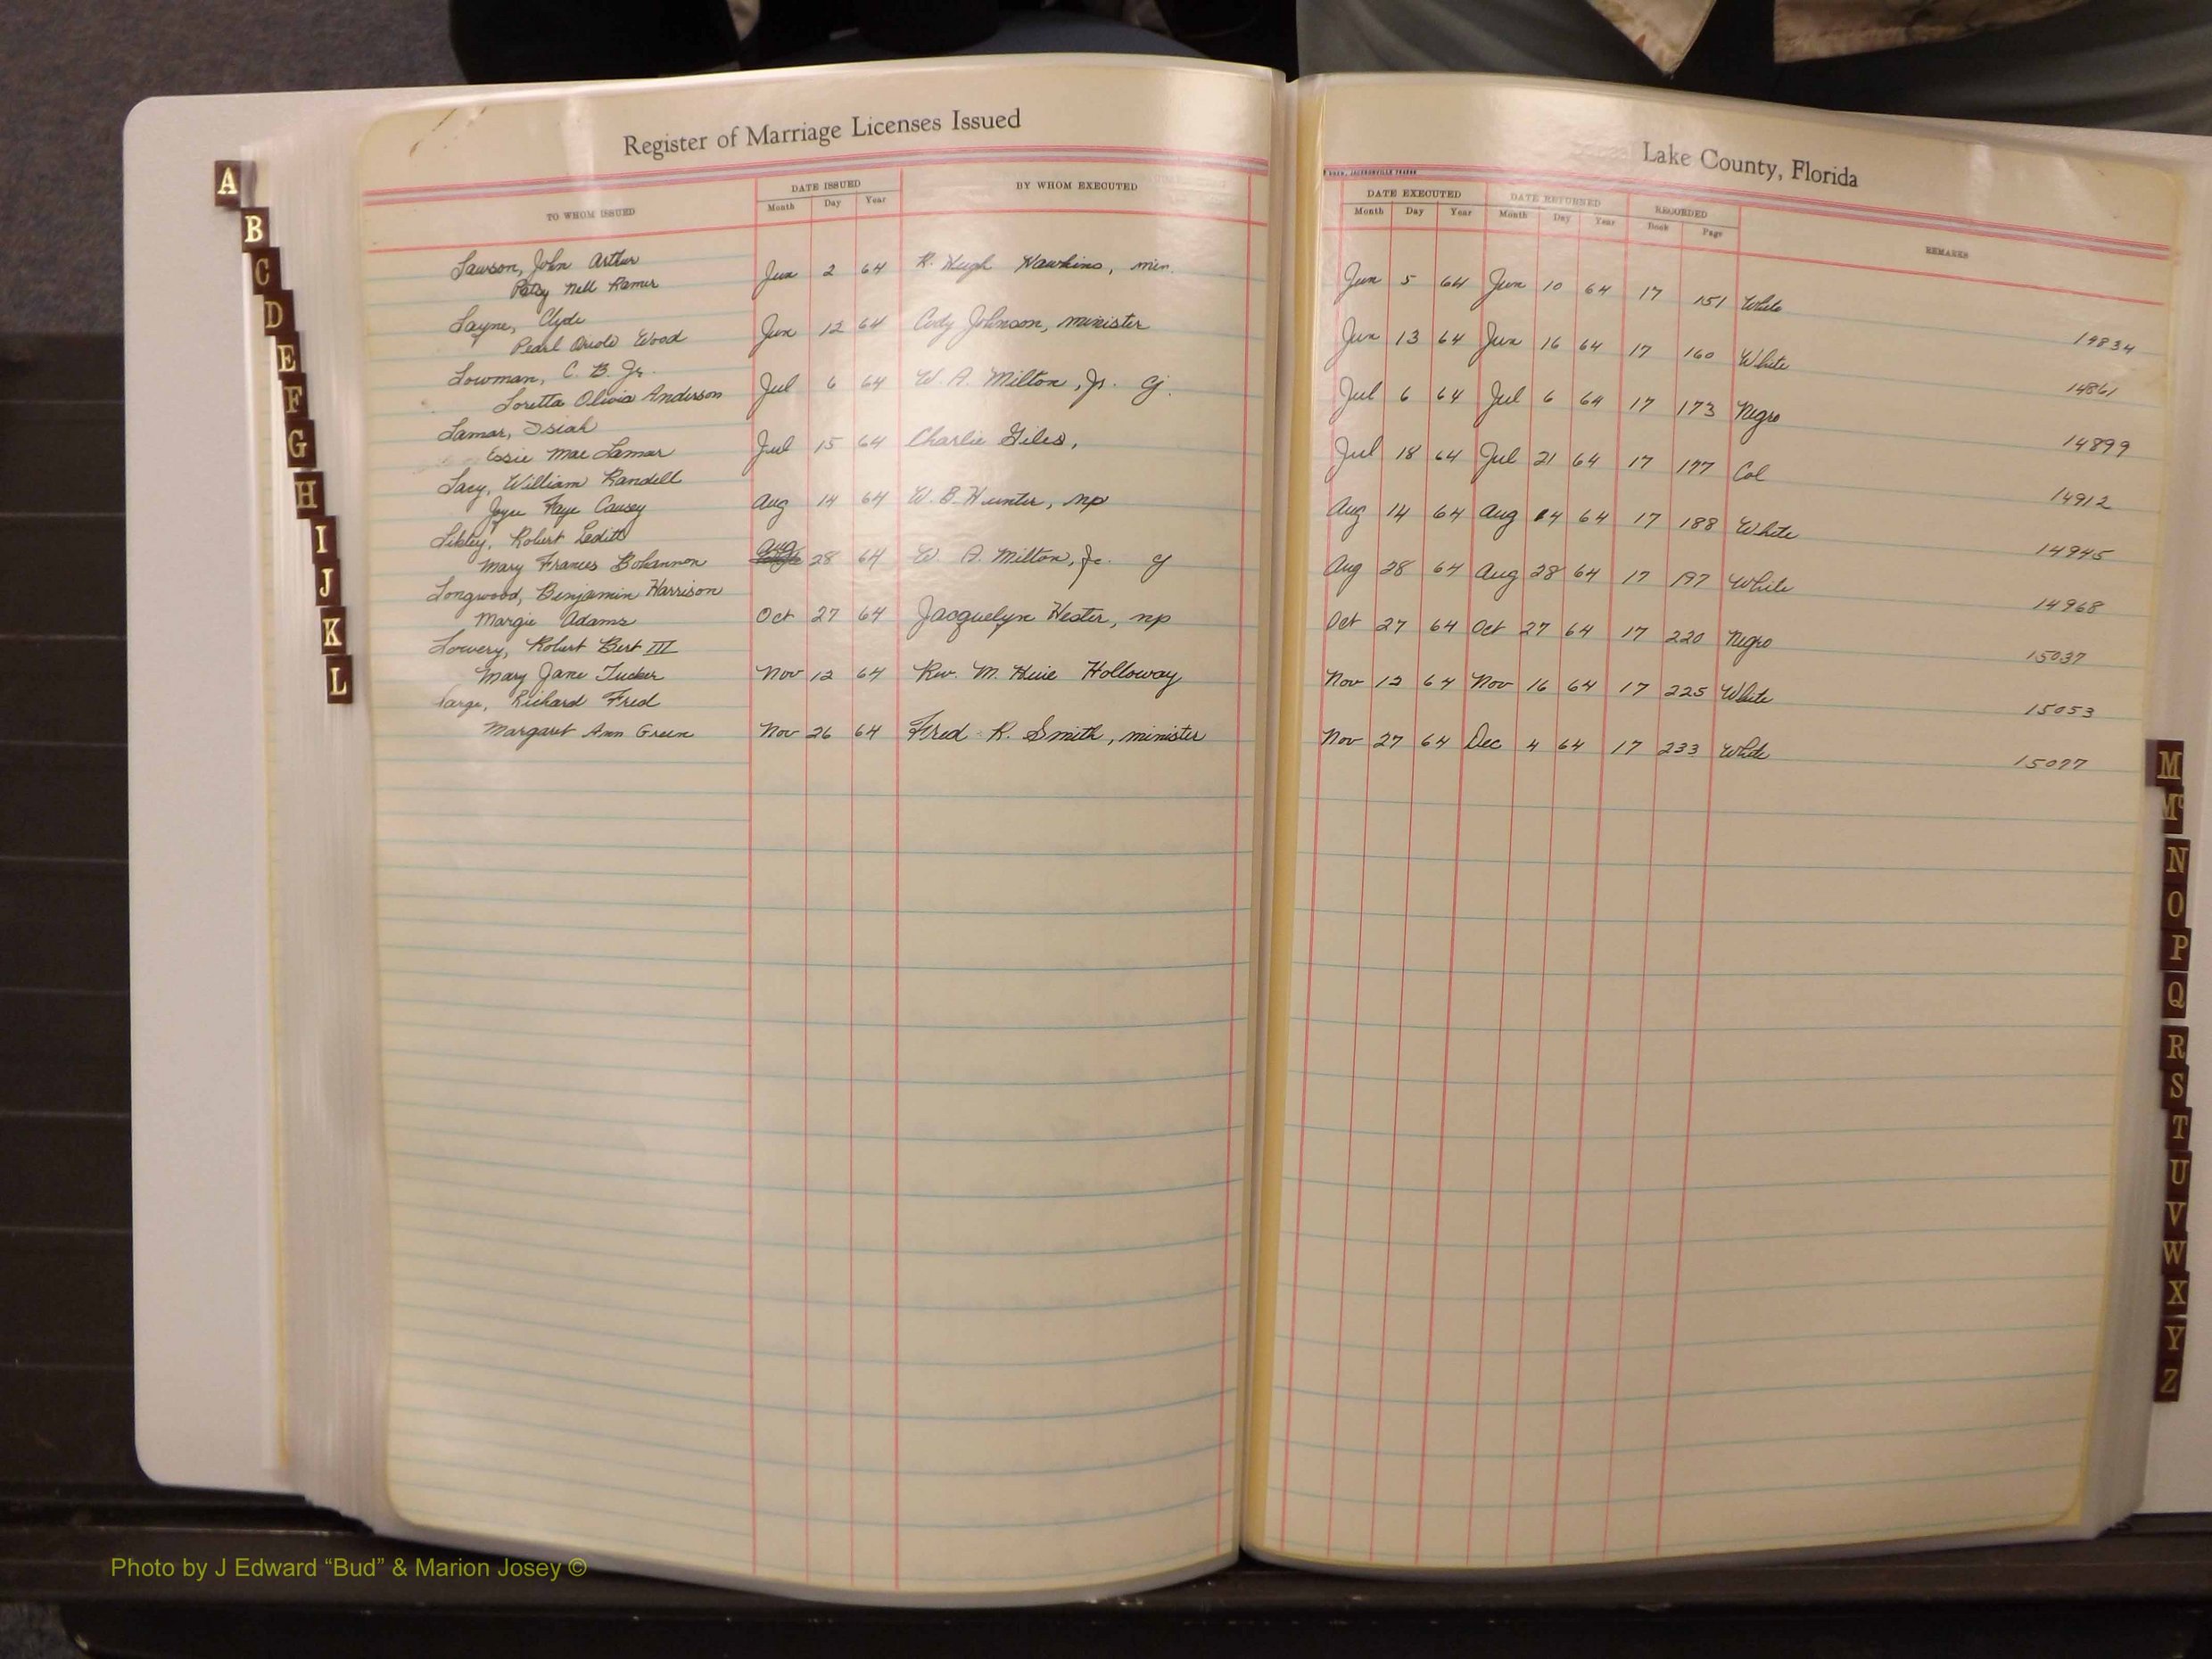 Register of Marriage Licenses Issued
TO WHOM ISSUED
DATE ISSUED
Month Day Year
BY WHOM EXECUTED
Lawson, John Arthur
Patsy Nell Ramer
Jun 2 64 R. Hugh Hawkins, min.
Layne, Clyde
Pearl Wood
Jun 12 64 Cody Johnson, minister
Lowman, C. B. Jr.
Loretta Olivia Anderson
Jul 6 64 W. A. Milton, Jr. cj.
Lamar, Isiah
Essie Mae Lamar
Jul 15 64 Charlie Giles,
Lacy, William Randell
Joyce Faye Causey
Aug 14 64 W. B. Hunter, np
Libley, Robert
Mary Frances Bohannon
Aug 28 64 W. A. Milton, Jr. cj
Longwood, Benjamin Harrison
Margie Adams
Oct 27 64 Jacquelyn Hester, np
Lowery, Robert Bert III
Mary Jane Tucker
Nov 12 64 Rev. M. Holloway
Large, Richard Fred
Margaret Ann Green
Nov 26 64 Fred R. Smith, minister
Lake County, Florida
DATE EXECUTED DATE RETURNED RECORDED
Month Day Year Month Day Year Book Page
REMARKS
Jun 5 64 Jun 10 64 17 151 White
14834
Jun 13 64 Jun 16 64 17 160 White
14861
Jul 6 64 Jul 6 64 17 173 Negro
14899
Jul 18 64 Jul 21 64 17 177 Col
14912
Aug 14 64 Aug 14 64 17 188 White
14945
Aug 28 64 Aug 28 64 17 197 White
14968
Oct 27 64 Oct 27 64 17 220 Negro
15037
Nov 12 64 Nov 16 64 17 225 White
15053
Nov 27 64 Dec 4 64 17 233 White
15077
A
B
C
D
E
F
G
H
I
J
K
L
M
Mc
N
O
P
Q
R
S
T
U
V
W
X
Y
Z
Photo by J Edward “Bud” & Marion Josey ©